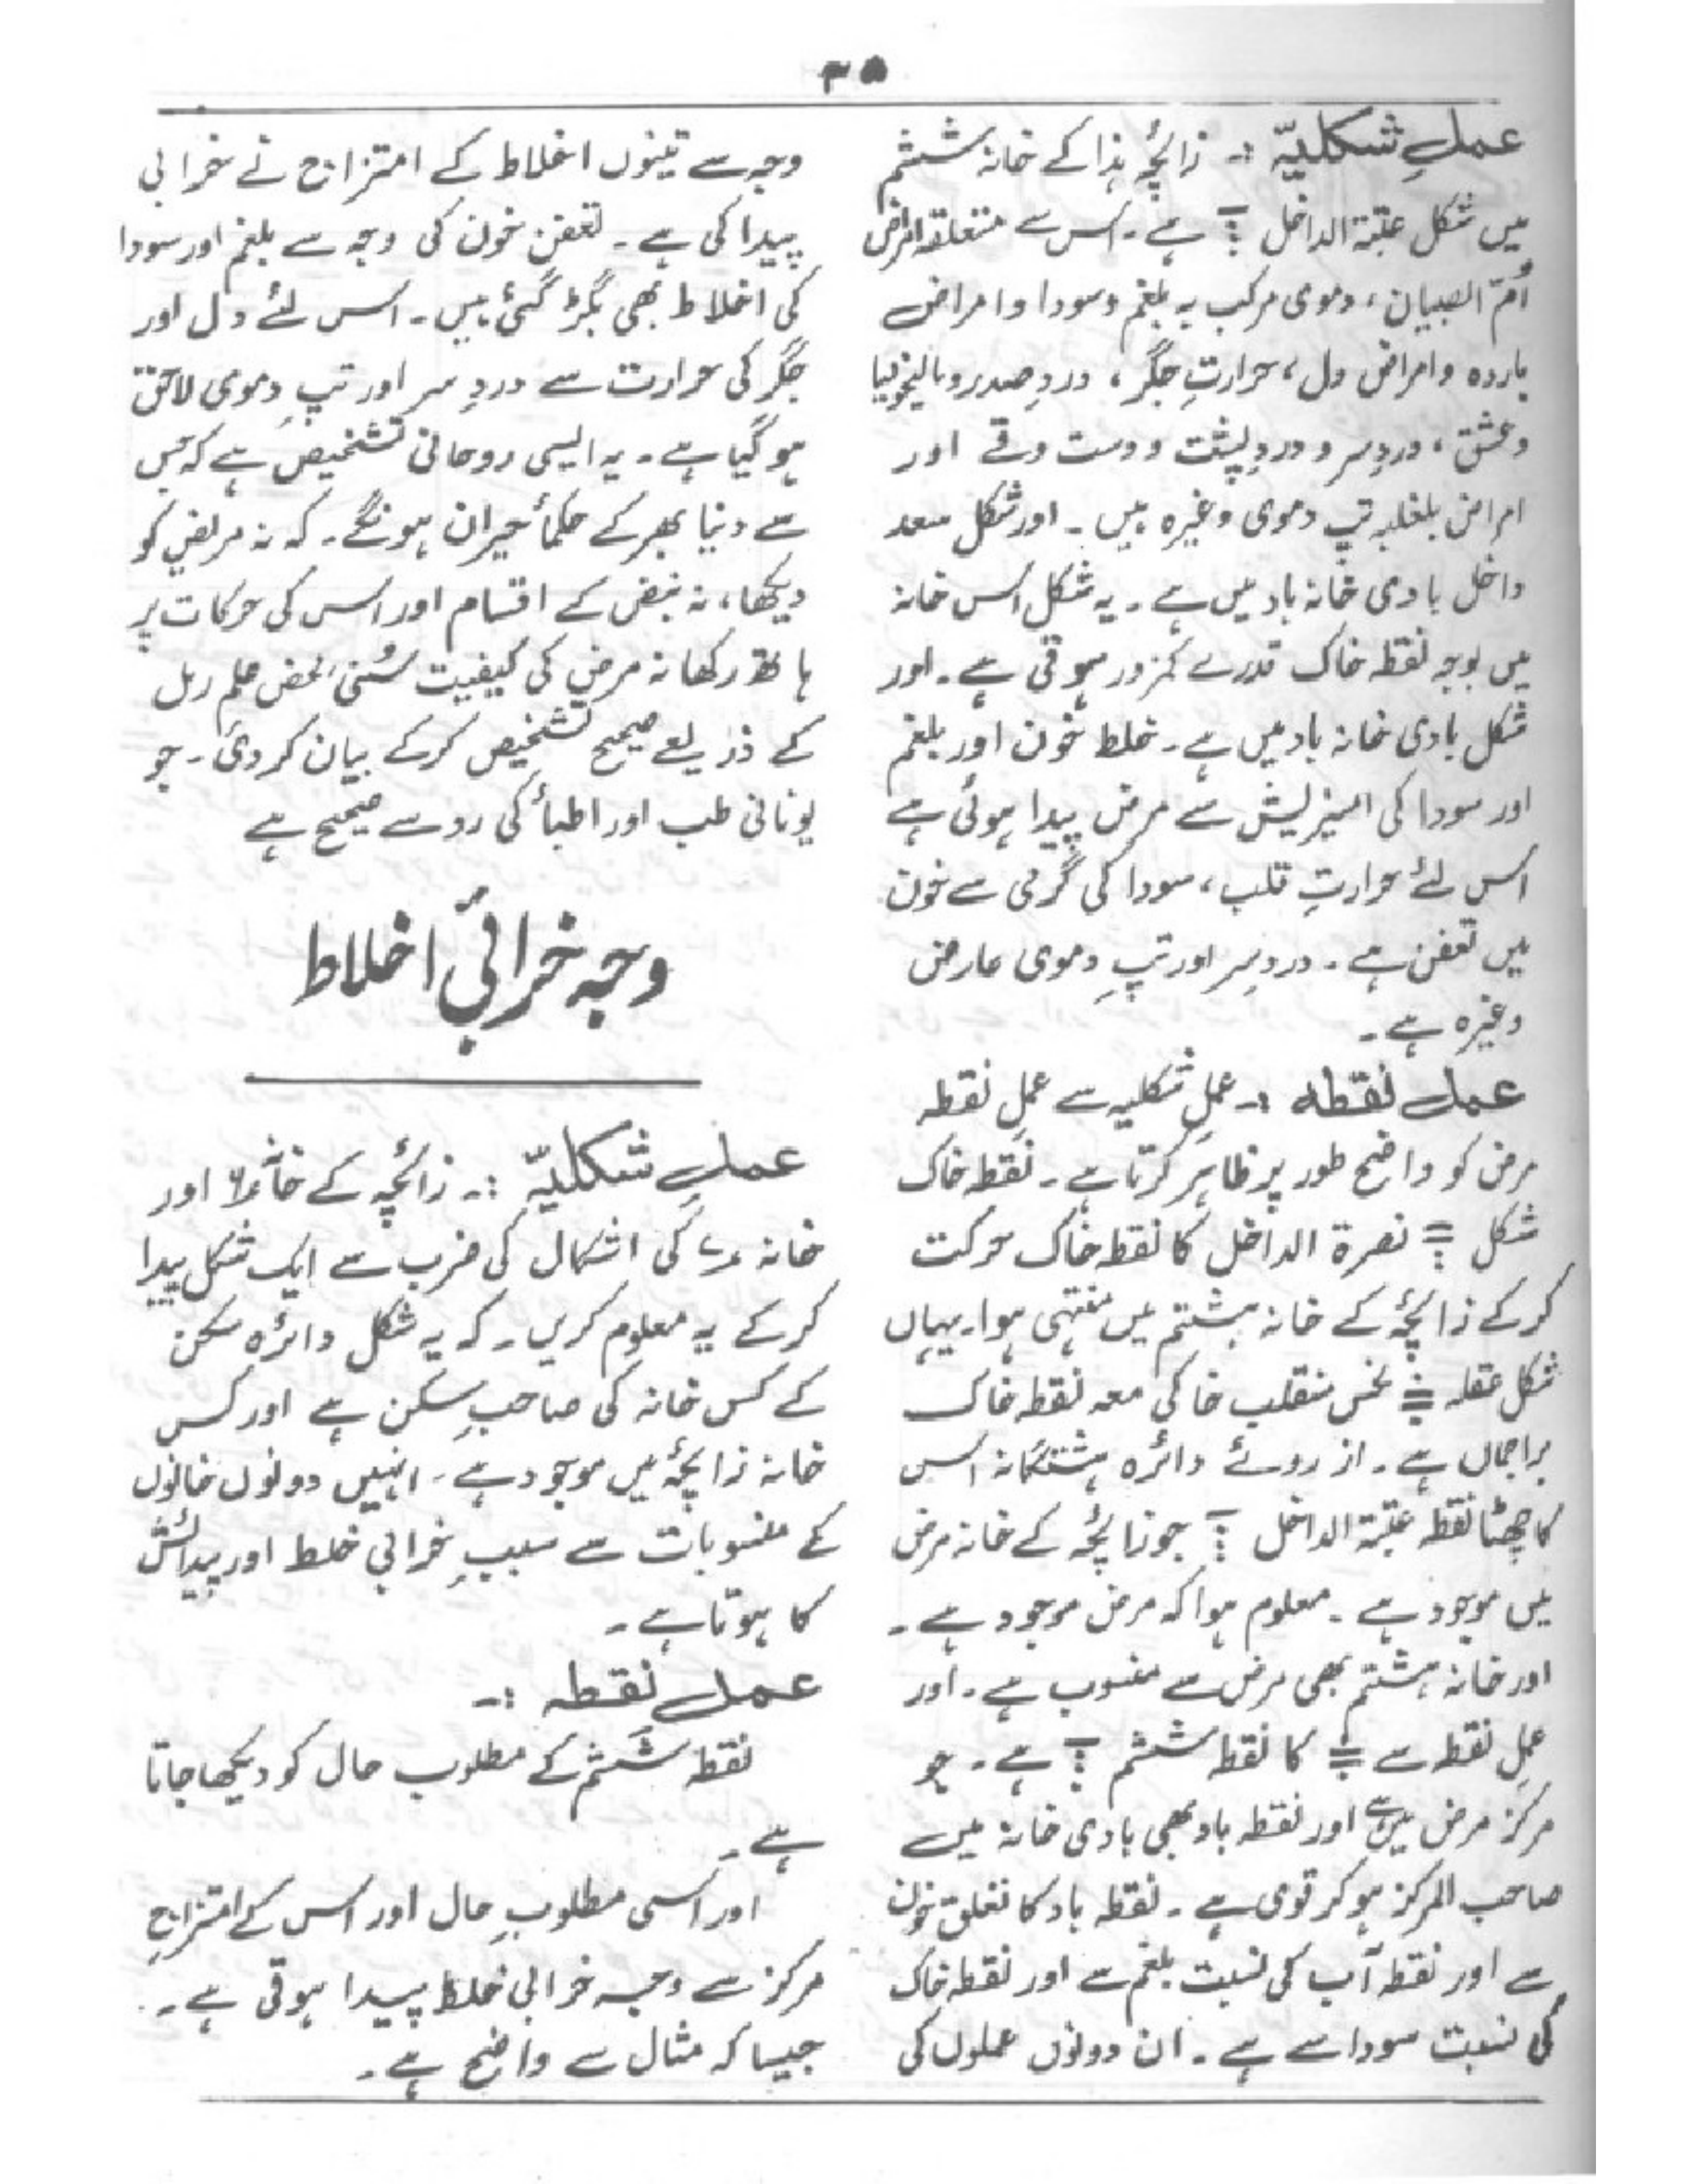 ۳۵
عملِ شکلیّہ :۔ زائچۂ ہذا کے خانہ ششم
میں شکل عقبۃ الداخل ہے۔ اس سے متعلقہ امراض
اُمّ الصبیان، دموی مرکب بہ بلغم و سودا و امراض
باردہ و امراض دل، حرارتِ جگر، دردِ صدر و مالیخولیا
و عشق، دردِ سر و دردِ پشت و دست وقے اور
امراض بلغلبہ تپ دموی وغیرہ ہیں۔ اور شکل سعد
داخل بادی خانہ باد میں ہے۔ یہ شکل اس خانہ
میں بوجہ نقطہ خاک قدرے کمزور ہوتی ہے۔ اور
شکل بادی خانہ باد میں ہے۔ خلط خون اور بلغم
اور سودا کی امیزیش سے مرض پیدا ہوئی ہے
اس لئے حرارتِ قلب، سودا کی گرمی سے خون
میں تعفن ہے۔ دردِ سر اور تپِ دموی عارض
وغیرہ ہے۔
عمل نقطہ :۔ عملِ شکلیہ سے عملِ نقطہ
مرض کو واضح طور پر ظاہر کرتا ہے۔ نقطہ خاک
شکل نصرۃ الداخل کا نقطہ خاک حرکت
کرکے زائچۂ کے خانہ ہشتم میں منتہی ہوا۔ یہاں
شکل عقلہ نحس منقلب خاکی معہ نقطہ خاک
براجمال ہے۔ از روئے دائرہ ہشتگانہ اس
کا چھٹا نقطہ عقبۃ الداخل جو زائچۂ کے خانہ مرض
میں موجود ہے۔ معلوم ہوا کہ مرض موجود ہے۔
اور خانہ ہشتم بھی مرض سے منسوب ہے۔ اور
عملِ نقطہ سے کا نقطہ ششم ہے۔ جو
مرکز مرض میں ہے اور نقطہ باد بھی بادی خانہ میں
صاحب المرکز ہو کر قوی ہے۔ نقطہ باد کا تعلق خون
سے اور نقطہ آب کی نسبت بلغم سے اور نقطہ خاک
کی نسبت سودا سے ہے۔ ان دونوں عملوں کی
وجہ سے تینوں اخلاط کے امتزاج نے خرابی
پیدا کی ہے۔ تعفن خون کی وجہ سے بلغم اور سودا
کی اخلاط بھی بگڑ گئی ہیں۔ اس لئے دل اور
جگر کی حرارت سے دردِ سر اور تپِ دموی لاحق
ہو گیا ہے۔ یہ ایسی روحانی تشخیص ہے کہ جس
سے دنیا بھر کے حکمأ حیران ہونگے۔ کہ نہ مریض کو
دیکھا، نہ نبض کے اقسام اور اس کی حرکات پر
ہاتھ رکھا نہ مرض کی کیفیت سُنی محض علم رمل
کے ذریعے صحیح تشخیص کرکے بیان کر دی۔ جو
یونانی طب اور اطبأ کی رو سے صحیح ہے
وجہ خرابیٔ اخلاط
عملِ شکلیّہ :۔ زائچہ کے خانہ ۶ اور
خانہ ۷ کی اشکال کی ضرب سے ایک شکل پیدا
کرکے یہ معلوم کریں۔ کہ یہ شکل دائرہ سکن
کے کس خانہ کی صاحبِ سکن ہے اور کس
خانہ زائچۂ میں موجود ہے۔ انہیں دونوں خانوں
کے منسوبات سے سببِ خرابی خلط اور پیدائش
کا ہوتا ہے۔
عمل نقطہ :۔
نقطہ ششم کے مطلوب حال کو دیکھا جاتا
ہے۔
اور اسی مطلوبِ حال اور اس کے امتزاجِ
مرکز سے وجہ خرابی خلط پیدا ہوتی ہے۔
جیسا کہ مثال سے واضح ہے۔